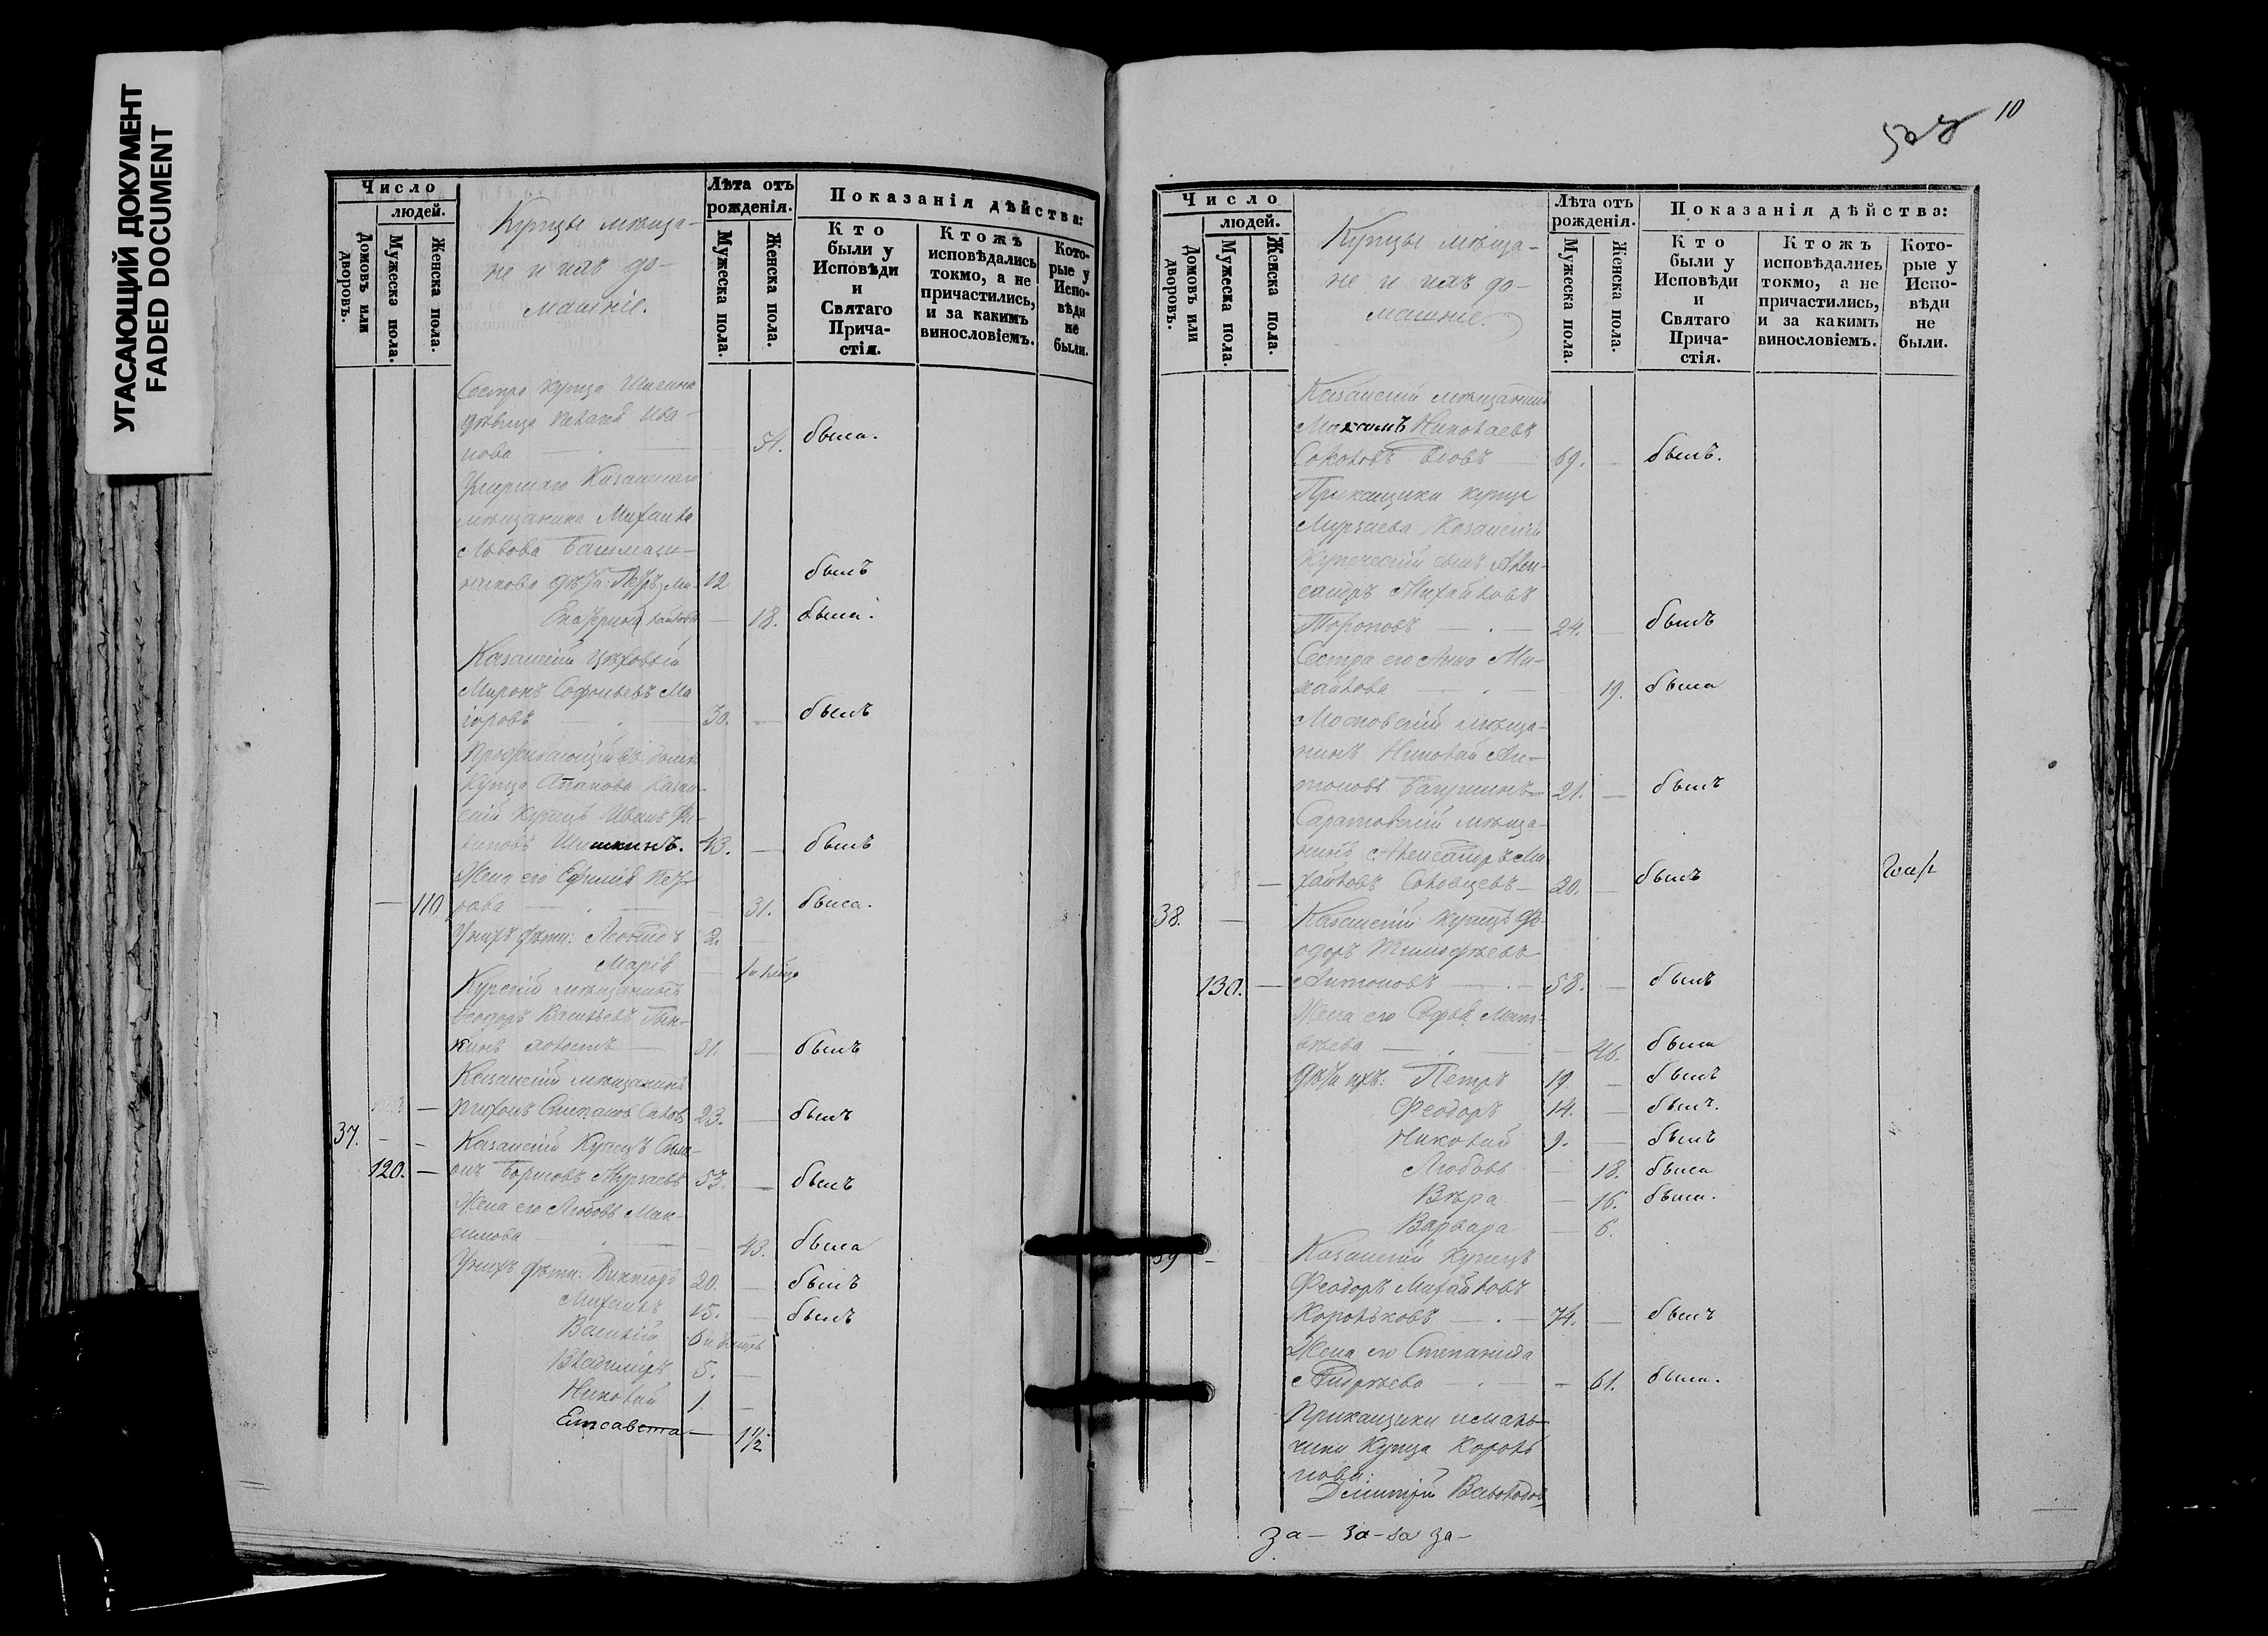 УГАСАЮЩИЙ ДОКУМЕНТ
FADED DOCUMENT
Число
людей.
Домовъ или дворовъ.
Мужеска пола.
Женска пола.
Купцы мѣща-
не и ихъ до-
машніе.
Лѣта отъ рожденія.
Мужеска пола.
Женска пола.
Показанія дѣйства:
Кто были у Исповѣди и Святаго Прича-стія.
Ктожъ исповѣдались токмо, а не причастились, и за какимъ винословіемъ.
Кото-рые у Испо-вѣди не были.
Сестра купца
дѣвица Ива-
нова 51. была.
Умершаго Казанскаго
мѣщанина Михаила
Львова Башмаш-
никова дѣти: Петръ Ми- 12 былъ
Екатерина хайловы 18. была.
Казанскій Цѣховый
Миронъ Софоньевъ Ма
іоровъ 30. былъ
Проживающій въ домѣ
Купца Казан-
скій Купецъ Иванъ Фи-
липовъ Шишкинъ. 43. былъ
Жена его Ефимія Пет-
110 рова 31. была.
У нихъ дѣти: Леонидъ 2.
Марія
Курскій мѣщанинъ
Ѳеодоръ Васильевъ
кинъ холостъ 31. былъ
Казанскій мѣщанинъ
Тихонъ Степановъ 23. былъ
37. Казанскій Купецъ Симе-
120. онъ Борисовъ Мурзаевъ 53. былъ
Жена его Любовь Мак-
симова 43. была
У нихъ дѣти: Викторъ 20. былъ
Михаилъ 15. былъ
Василій 6
Владиміръ 5.
Николай 1.
Елисавета 1 1/2
10
Число
людей.
Домовъ или дворовъ.
Мужеска пола.
Женска пола.
Купцы мѣща-
не и ихъ до-
машніе.
Лѣта отъ рожденія.
Мужеска пола.
Женска пола.
Показанія дѣйства:
Кто были у Исповѣди и Святаго Прича-стія.
Ктожъ исповѣдались токмо, а не причастились, и за какимъ винословіемъ.
Кото-рые у Испо-вѣди не были.
Казанскій мѣщанинъ
Максимъ Николаевъ
69. былъ.
Прикащики купца
Мурзаева Казанскій
Купеческій сынъ Алек-
сандръ Михайловъ
Тороповъ 24. былъ
Сестра его Анна Ми-
хайлова 19. была
Московскій мѣща-
нинъ Николай Ан-
тоновъ 21. былъ
Саратовскій мѣща-
нинъ Александръ Ми
хайловъ 20. былъ
38. Казанскій Купецъ Фе-
одоръ Тимофѣевъ
130. Антоновъ 58. былъ
Жена его Софья Мат-
вѣева 46. была
Дѣти ихъ: Петръ 19. былъ
Феодоръ 14. былъ.
Николай 9. былъ
Любовь 18. была
Вѣра 16. была.
Варвара 6.
39 Казанскій Купецъ
Феодоръ Михайловъ
Корольковъ 74. былъ
Жена его Степанида
Андрѣева 61. была.
Прикащики и маль-
чики Купца Король
кова:
Димитрій
за - за - за за -